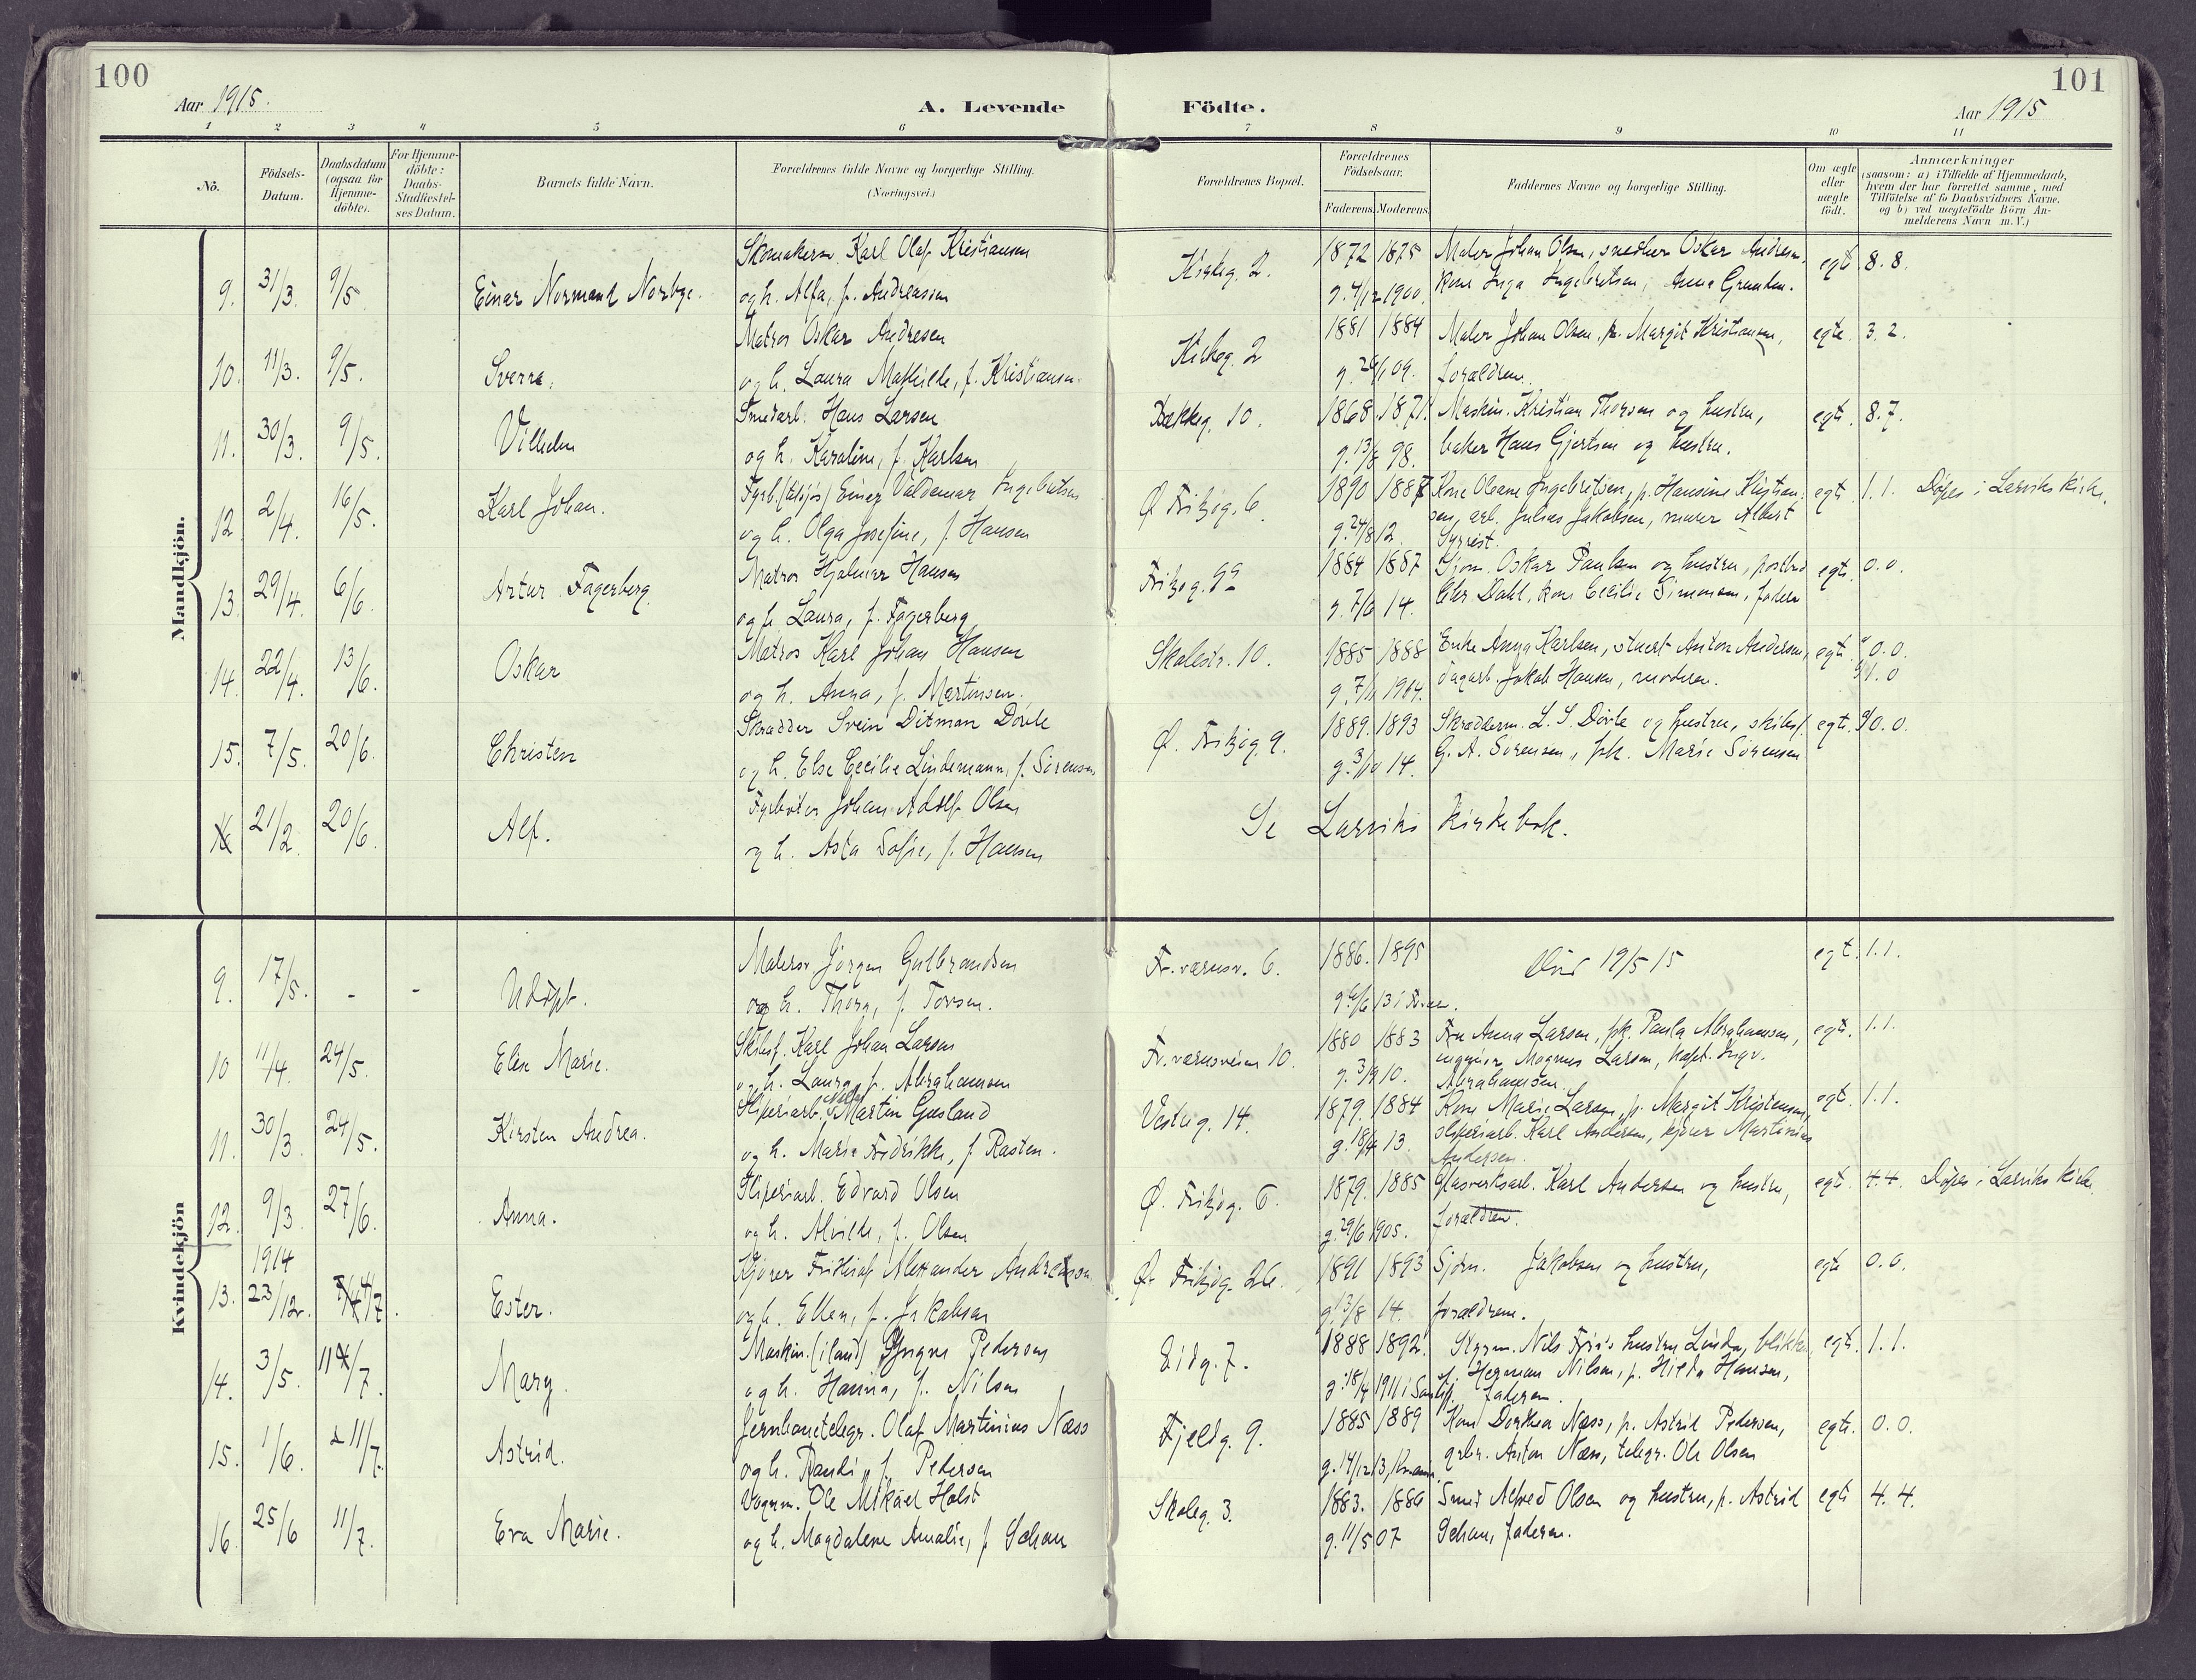 100
Aar 1915.
A. Levende
Födte.
101
Aar 1915
1 2 3 4 5 6 7 8 9 10 11
No.
Födsels-
Datum.
Daabsdatum
(ogsaa for
Hjemme-
döbte).
For Hjemme-
döbte:
Daabs-
Stadfæstel-
ses Datum.
Barnets fulde Navn.
Forældrenes fulde Navne og borgerlige Stilling.
(Næringsvei.)
Forældrenes Bopæl.
Forældrenes
Födselsaar.
Faderens. Moderens.
Faddernes Navne og borgerlige Stilling.
Om ægte
eller
uægte
födt.
Anmærkninger
(saasom: a) i Tilfælde af Hjemmedaab,
hvem der har forrettet samme, med
Tilföielse af to Daabsvidners Navne,
og b) ved uægtefödte Börn An-
melderens Navn m.V.)
Mandkjön.
9. 31/3. 9/5. Einar Normand Norbye.
Skomakersv. Karl Olaf Kristiansen
og h. Alfa, f. Andreassen
Kirkeg. 2. 1872 1875
g. 4/12 1900.
Maler Johan Olsen, snedker Oskar Andresen,
kone Inga Ingebretsen, Anna
egt. 8.8.
10. 11/3. 9/5. Sverre.
Matros Oskar Andresen
og h. Laura Mathilde, f. Kristiansen.
Kirkeg. 2 1881 1884
g. 09.
Maler Johan Olsen, p. Margit Kristiansen,
forældrene.
egte. 3.2.
11. 30/3. 9/5. Vilhelm
Smedarb. Hans Larsen
og h. Karoline, f. Karlsen
Bækkeg. 10. 1868. 1871.
g. 13/8 98.
Maskin. Kristian Thorsen og hustru,
baker Hans Gjertsen og hustru.
egte. 8.7.
12 2/4. 16/5. Karl Johan.
Fyrb. (tilsjøs) Einar Valdemar Ingebretsen
og h. Olga Josefine, f. Hansen
Ø. Fritzøg. 6. 1890 1887
g. 24/8 12.
Kone Oleane Ingebretsen, p. Hansine Kristian-
sen, arb. Julius Jakobsen, murer Albert
Syrrist.
egte. 1.1. Døpes i Larviks kirke.
13. 29/4. 6/6. Artur Fagerberg.
Matros Hjalmar Hansen
og h. Laura, f. Fagerberg
Fritzøg. 1884 1887
g. 7/6 14.
Sjøm. Oskar Paulsen og hustru, postbud
Dahl, kone Cecilie Simonsen, faderen
egte. 0.0.
14. 22/4. 13/6. Oskar
Matros Karl Johan Hansen
og h. Anna, f. Martinsen.
Skolestr. 10. 1885 1888
g. 7/11 1914.
Enke Anna Karlsen, stuert Anton Andersen,
dagarb. Jakob Hansen, moderen.
egte. 0.0.
1.0
15. 7/5. 20/6. Christen
Skrædder Svein Ditman Dövle
og h. Else Cecilie Lindemann, f. Sörensen
Ø. Fritzøg. 9. 1889. 1893
g. 3/10 14.
Skræderm. L. S. Dövle og hustru, skibsf.
G. A. Sörensen, frk. Marie Sörensen
egte. 0.0.
16 21/2 20/6. Alf.
Fyrbøter Johan Adolf Olsen
og h. Asta Sofie, f. Hansen
Se Larviks kirkebok.
Kvindekjön
9. 17/5. - - Udöpt.
Malersv. Jörgen Gulbrandsen
og h. Thora, f. Torsen.
Fr.værnsv. 6. 1886. 1895
Död 19/5 15
egt. 1.1.
10 11/4. 24/5. Else Marie.
Skibsf. Karl Johan Larsen
og h. Laura, f. Abrahamsen
Fr.værnsveien 10. 1880 1883
g. 3/9 10.
Fru Anna Larsen, frk. Paula Abrahamsen,
ingeniør Magnus Larsen, kapt. Ingv.
Abrahamsen.
egte. 1.1.
11. 30/3. 24/5. Kirsten Andrea.
Sliperiarb. Martin Gusland
og h. Marie Fredrikke, f. Rasten.
Vesteg. 14. 1879. 1884
g. 18/4 13.
Kone Marie Larsen, p. Margit Kristensen,
sliperiarb. Karl Andersen, kjører Martinius
Andersen.
egt. 1.1.
12. 9/3. 27/6. Anna.
Sliperiarb. Edvard Olsen
og h. Alvilde, f. Olsen
Ø. Fritzøg. 6. 1879. 1885
g. 29/6 1905.
Glasverksarb. Karl Andersen og hustru,
forældrene.
egte. 4.4. Døpes i Larviks kirke.
13. 1914 23/12. 4/7. Ester.
Kjører Frithjof Alexander Andreasson
og h. Ellen, f. Jakobsen
Ø. Fritzøg. 26. 1891 1893
g. 13/8 14.
Sjøm. Jakobsen og hustru,
forældrene.
egte 0.0.
14. 3/5. 11/7. Mary.
Maskin. (iland) Yngve Pedersen
og h. Hanna, f. Nilsen
Eidg. 7. 1888 1892.
g. 18/4 1911 i
Styrm. Nils Friis hustru Linda,
Herman Nilsen, p. Hilda Hansen,
faderen.
egte. 1.1.
15. 1/6. 11/7. Astrid.
Jernbanetelegr. Olaf Martinius Næss
og h. Randi, f. Pedersen
Fjeldg. 9. 1885 1889
g. 14/12 13,
Kone Dorthea Næss, p. Astrid Pedersen,
grbr. Anton Næss, telegr. Ole Olsen
egte. 0.0.
16. 25/6 11/7. Eva Marie.
Vognm. Ole Mikael Holst
og h. Magdalene Amalie, f. Schau
Skoleg. 3. 1883. 1886
g. 11/5 07
Smed Alfred Olsen og hustru, p. Astrid
Schau, faderen.
egte 4.4.